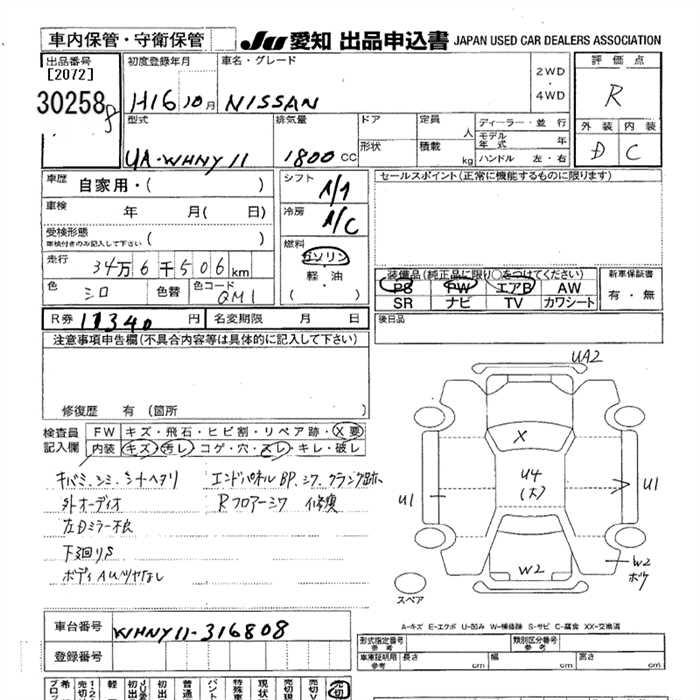 車内保管・守衛保管 JU 愛知 出品申込書 JAPAN USED CAR DEALERS ASSOCIATION
出品番号 初度登録年月 車名・グレード 2WD・4WD 評価点
[2072]
30258 8 H16 10月 NISSAN R
型式 排気量 ドア 定員 人 ディーラー・並行 外装 内装
UA-WHNY11 1800cc 形状 積載 kg モデル年式 年 D C
ハンドル 左・右
車歴 自家用・( ) シフト A/T セールスポイント(正常に機能するものに限ります)
車検 年 月( 日) 冷房 A/C
受検形態 ( )
車検付きのみ記入して下さい
燃料 ガソリン
走行 34万6千506km 軽・油
装備品(純正品に限り○をつけてください) 新車保証書
色 シロ 色替 色コード QM1 (・) PS PW エアB AW 有・無
SR ナビ TV カワシート
R券 11340円 名変期限 月 日 後日品
注意事項申告欄(不具合内容等は具体的に記入して下さい)
修復歴 有(箇所 )
検査員 FW キズ・飛石・ヒビ割・リペア跡・X要
記入欄 内装 キズ・汚レ・コゲ・穴・スレ・キレ・破レ
エンドパネルBP、シワ、
外オーディオ Rフロアーシワ 修復
左Dミラー不良
下廻りS
ボディAUツヤなし
UA2
X
U4
(大)
U1
U1
W2
W2
ボケ
スペア
A-キズ E-エクボ U-凹み W-補修跡 S-サビ C-腐食 XX-交換済
車台番号 WHNY11-316808
登録番号
形式指定番号 参考 類別区分番号 参考
車庫証明用 参考 長さ cm 幅 cm 高さ cm